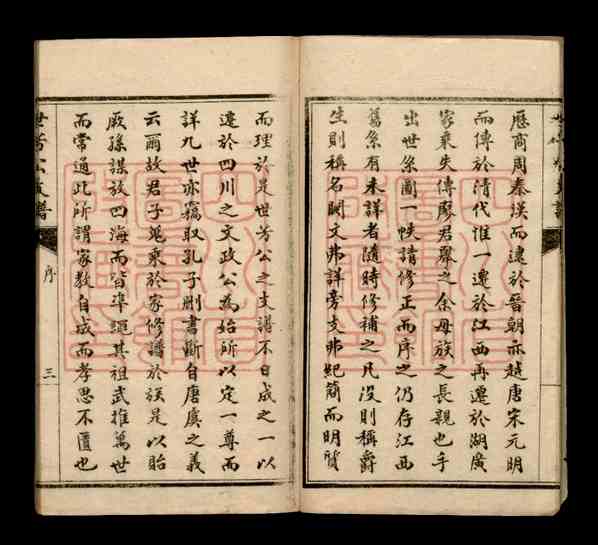 歷商周秦漢而遠於晉朝亦越唐宋元明
而傳於清代惟一遷於江西再遷於湖廣
家乘失傳廖君羣之余母族之長親也手
出世系圖一帙請修正而序之仍存江西
舊系有未詳者隨時修補之凡沒則稱爵
生則稱名闕文弗詳旁支弗紀簡而明質
而理於是世芳公之支譜不日成之一以
遷於四川之文政公為始所以定一尊而
詳九世亦竊取孔子刪書斷自唐虞之義
云爾故君子冕乘於家修譜於族是以貽
厥孫謀放四海而皆準繩其祖武推萬世
而常通此所謂家教自成而孝思不匱也
世芳公支譜
序
三